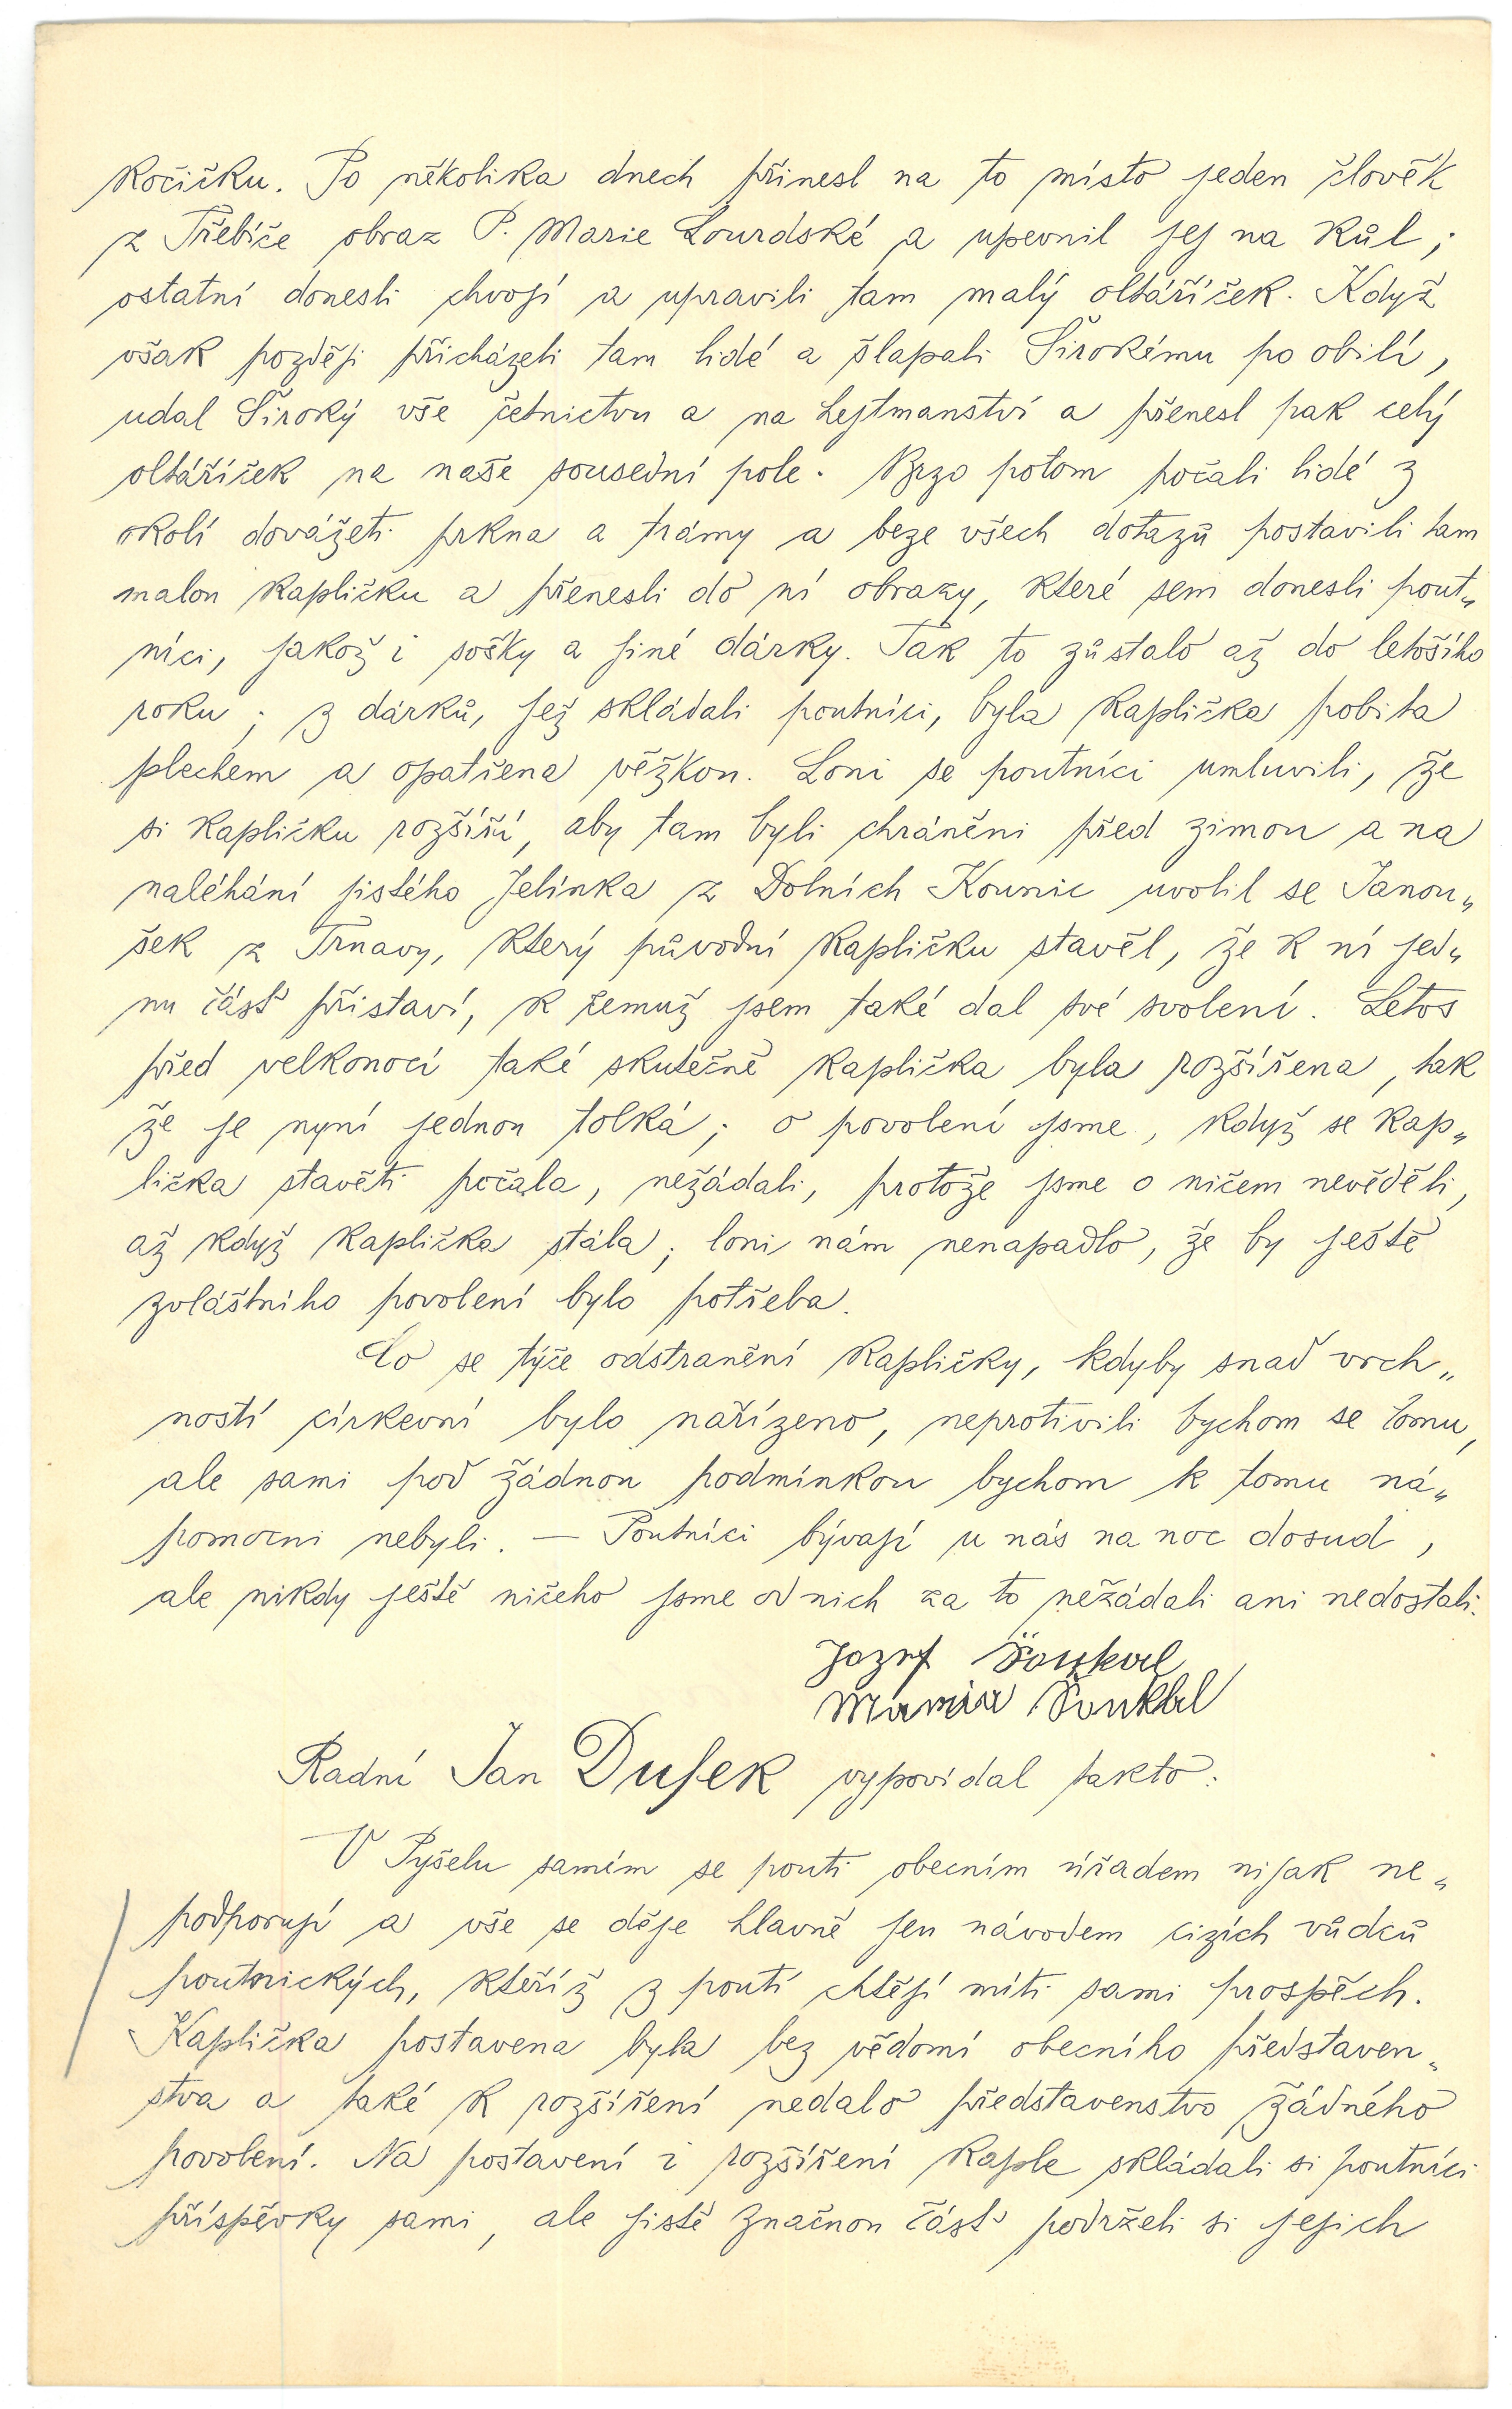 kočičku. Po několika dnech přinesl na to místo jeden člověk
z Třebíče obraz P. Marie Lourdské a upevnil jej na kůl;
ostatní donesli chvojí a upravili tam malý oltáříček. Když
však později přicházeli tam lidé a šlapali Širokému po obilí,
udal Široký vše četnictvu a na hejtmanství a přenesl pak celý
oltáříček na naše sousední pole. Brzo potom počali lidé z
okolí dovážeti prkna a trámy a beze všech dotazů postavili tam
malou kapličku a přenesli do ní obrazy, které sem donesli pout„
níci, jakož i sošky a jiné dárky. Tak to zůstalo až do letošího
roku; z dárků, jež skládali poutníci, byla kaplička pobita
plechem a opatřena věžkou. Loni se poutníci umluvili, že
si kapličku rozšíří, aby tam byli chráněni před zimou a na
naléhání jistého Jelínka z Dolních Kounic uvolil se Janou„
šek z Trnavy, který původní kapličku stavěl, že k ní jed„
nu část přistaví, k čemuž jsem také dal své svolení. Letos
před velkonocí také skutečně kaplička byla rozšířena, tak
že je nyní jednou tolká; o povolení jsme, když se kap„
lička stavěti počala, nežádali, protože jsme o ničem nevěděli,
až když kaplička stála; loni nám nenapadlo, že by ještě
zvláštního povolení bylo potřeba.
Co se týče odstranění kapličky, kdyby snad vrch„
ností církevní bylo nařízeno, neprotivili bychom se tomu,
ale sami pod žádnou podmínkou bychom k tomu ná„
pomocni nebyli. — Poutníci bývají u nás na noc dosud,
ale nikdy ještě ničeho jsme od nich za to nežádali ani nedostali.
Jozef Šoukal
Maria Šoukal
Radní Jan Dufek vypovídal takto:
V Pyšelu samém se pouti obecním úřadem nijak ne„
podporují a vše se děje hlavně jen návodem cizích vůdců
poutnických, kteříž z poutí chtějí míti sami prospěch.
Kaplička postavena byla bez vědomí obecního představen„
stva a také k rozšíření nedalo představenstvo žádného
povolení. Na postavení i rozšíření kaple skládali si poutníci
příspěvky sami, ale jistě značnou část podrželi si jejich